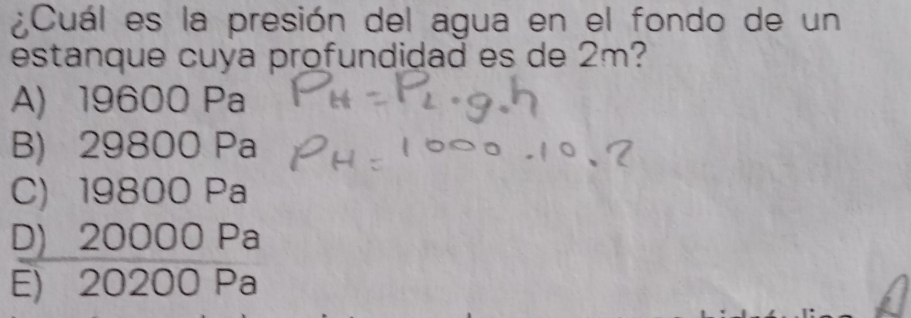 ¿Cuál es la presión del agua en el fondo de un
estanque cuya profundidad es de 2m?
A) 19600 Pa P_H = P_L . g . h
B) 29800 Pa P_H = 1000 . 10 . 2
C) 19800 Pa
D) 20000 Pa
E) 20200 Pa